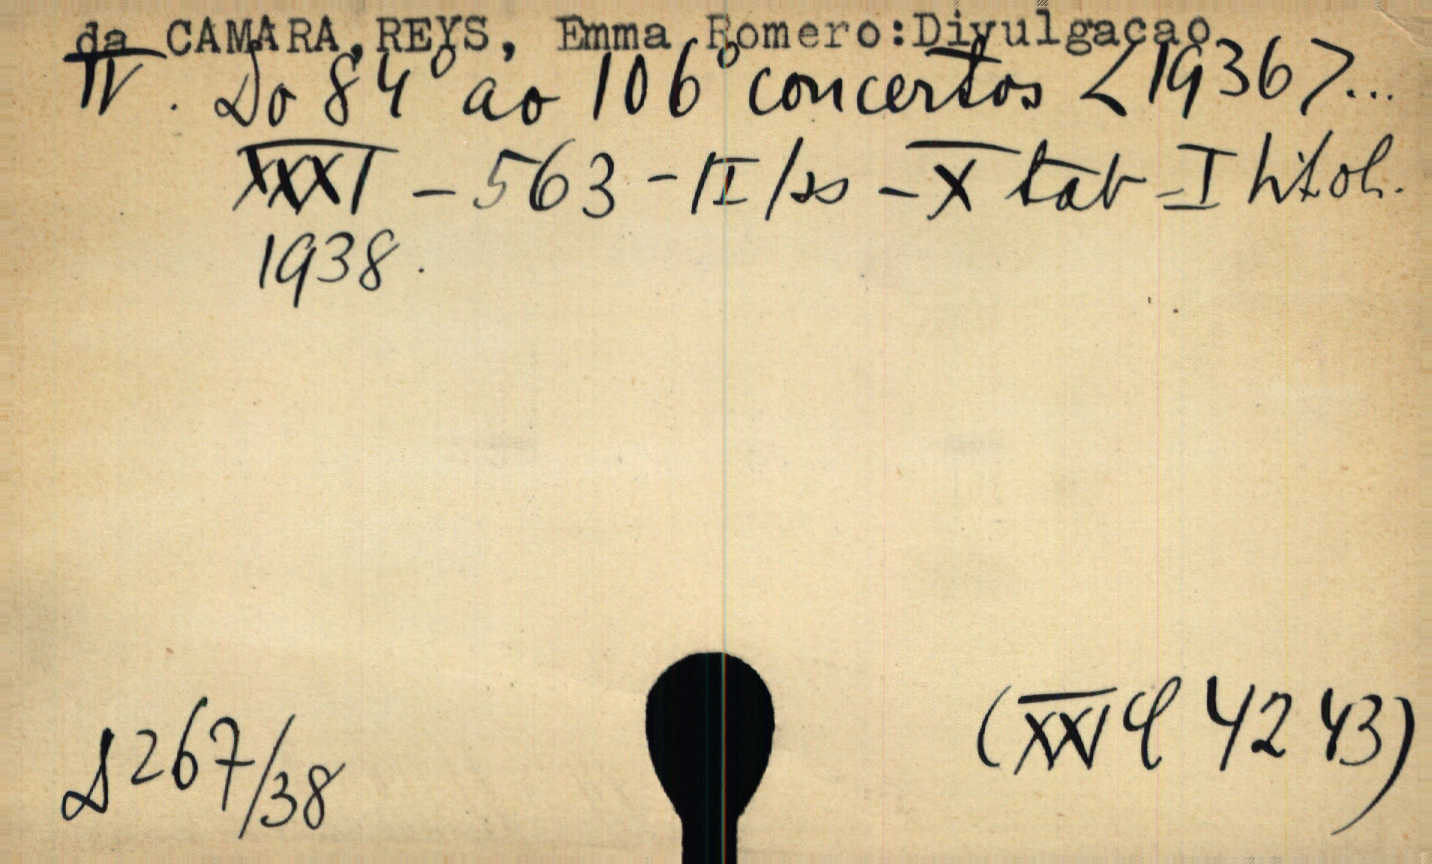 da CAMARA,REYS, Emma Romero:Divulgacao
IV. Do 84º ao 106º concertos <1936>...
XXXI - 563 - II/ss - X tab - I litol.
1938.
S 267/38
(XXV 4243)